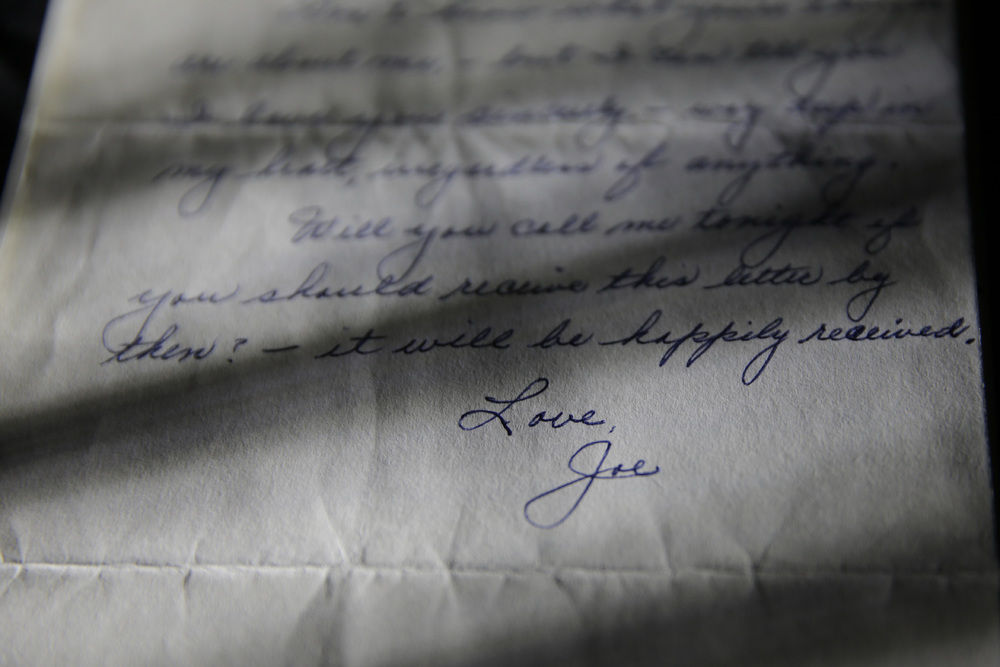 me, - but I can tell you
I - way deep in
my heart, regardless of anything.
Will you call me tonight if
you should receive this letter by
then? - it will be happily received.
Love,
Joe